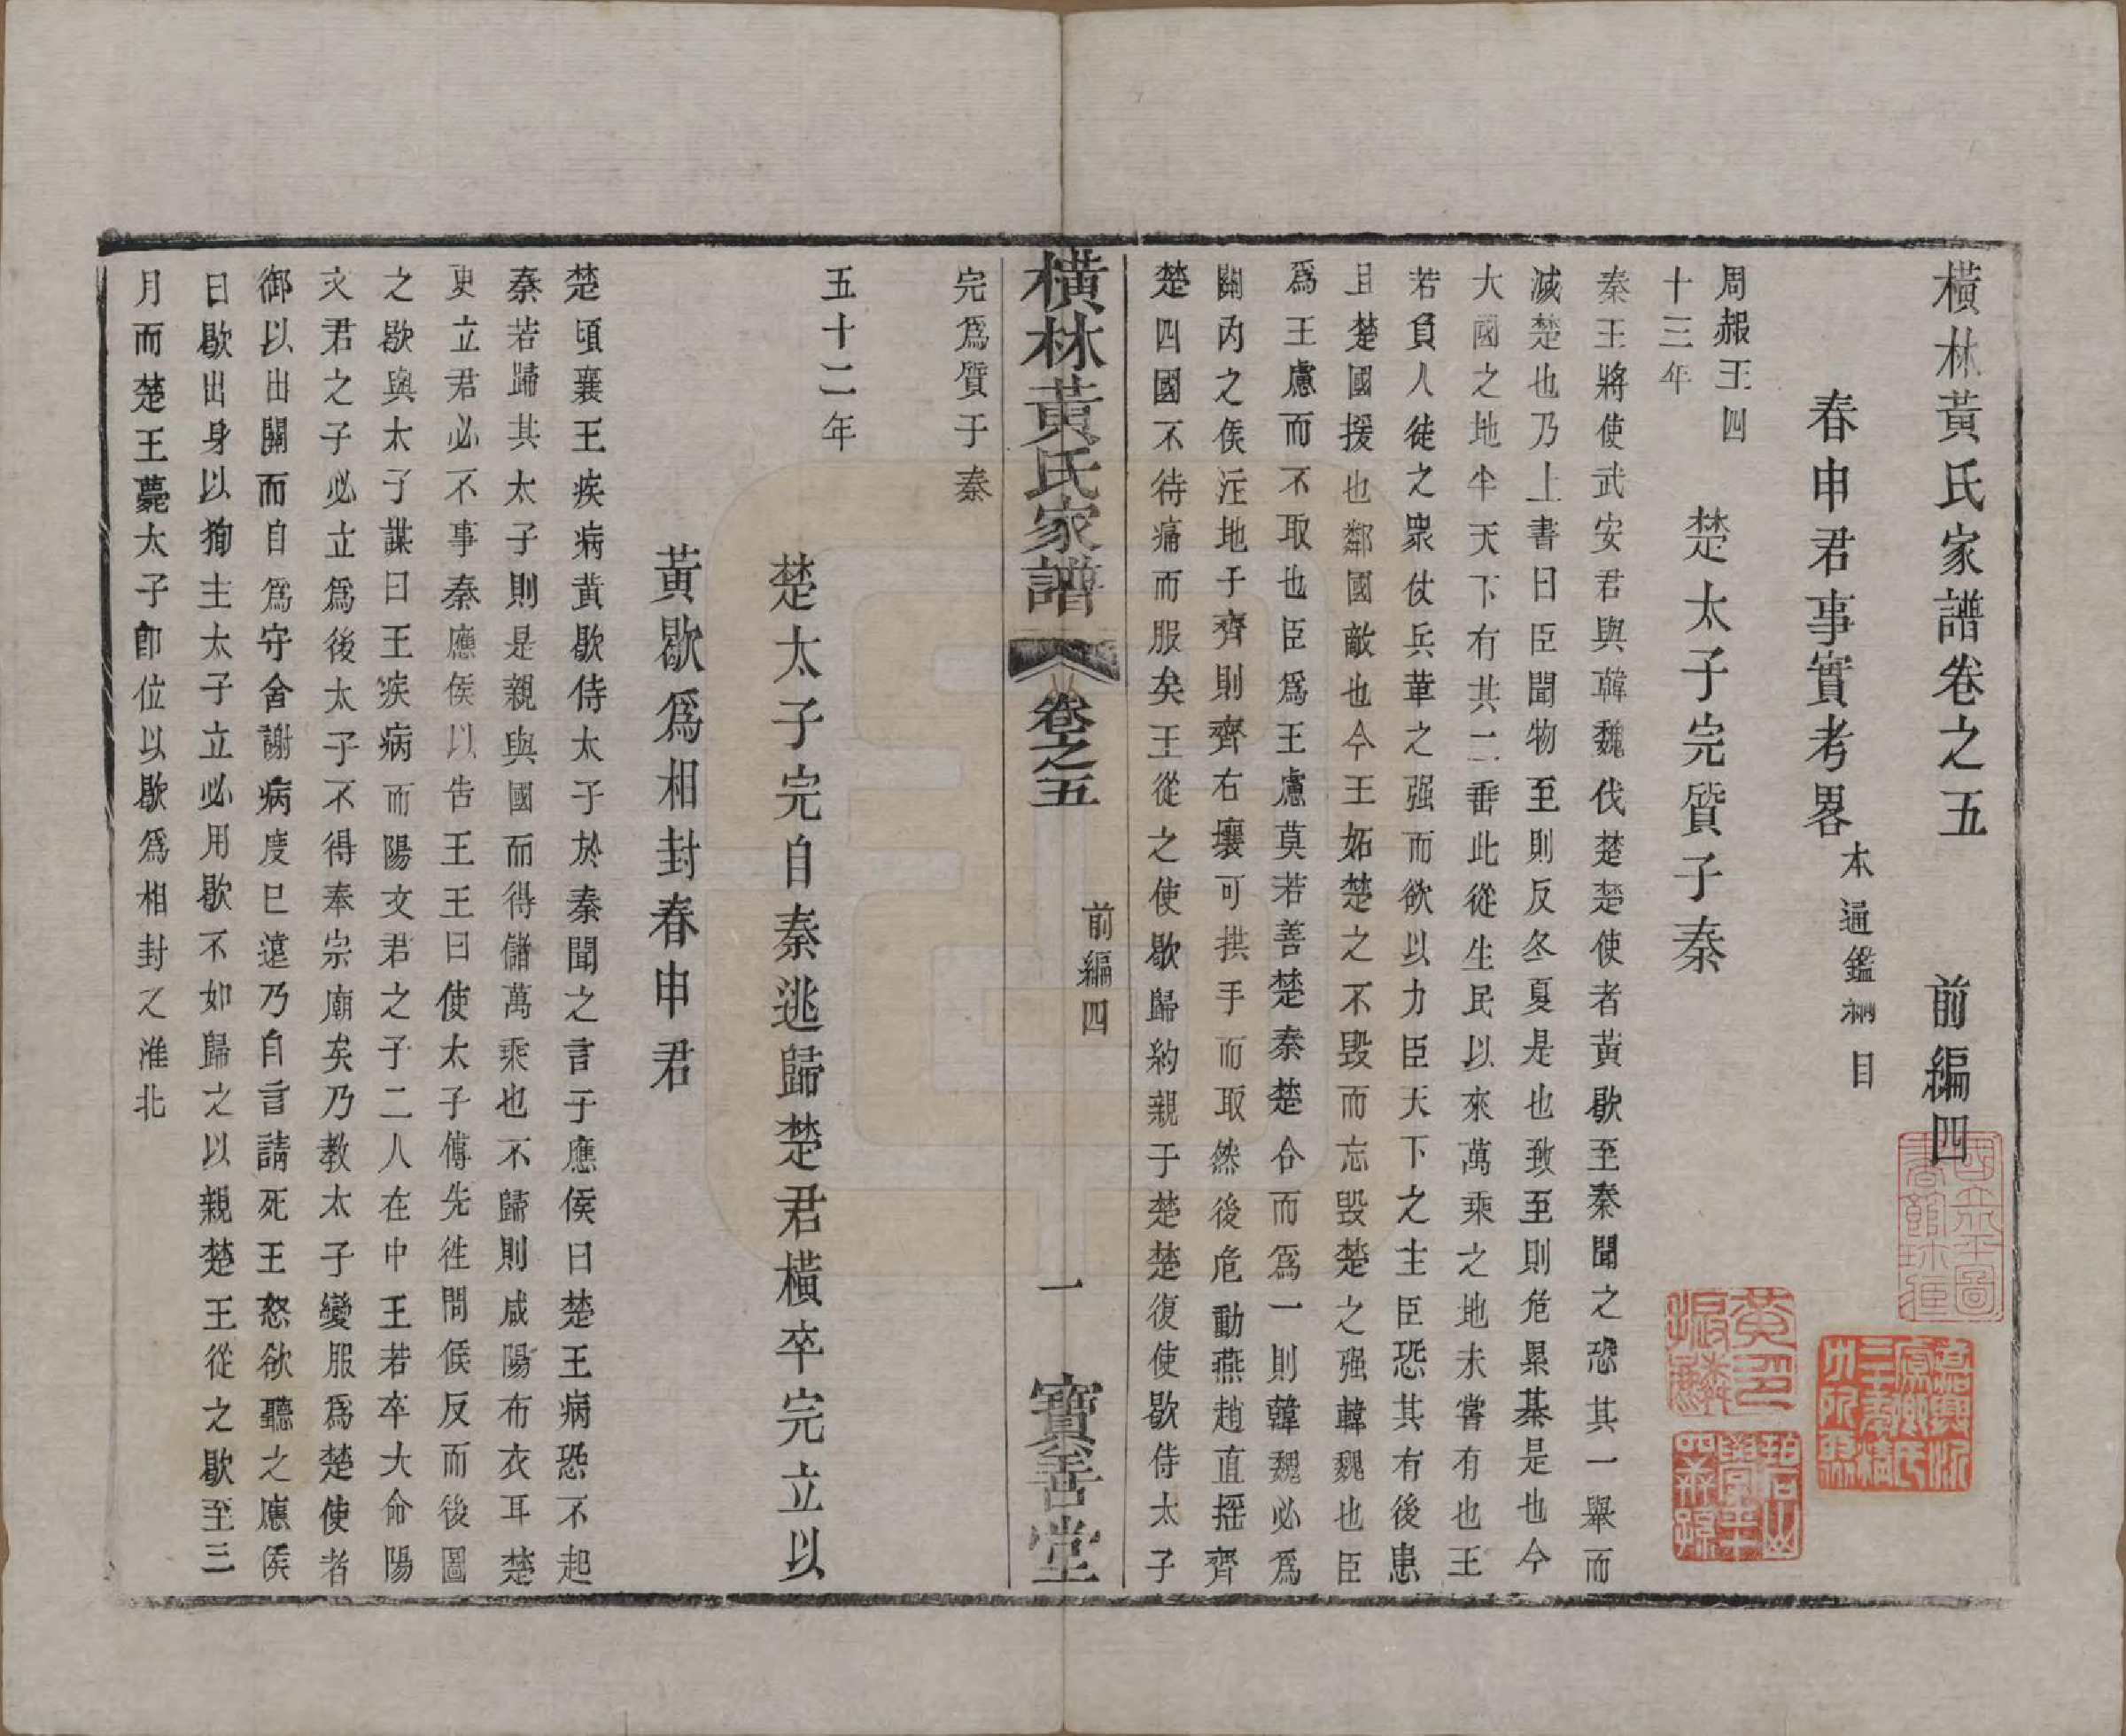 橫林黃氏家譜卷之五　前編四
春申君事實考畧本通鑑綱目
周赧王四
十三年
楚太子完質子秦
秦王將使武安君與韓魏伐楚楚使者黃歇至秦聞之恐其一舉而
滅楚也乃上書曰臣聞物至則反冬夏是也致至則危累棊是也今
大國之地半天下有其二垂此從生民以來萬乘之地未嘗有也王
若負人徒之眾仗兵革之强而欲以力臣天下之主臣恐其有後患
且楚國援也鄰國敵也今王妬楚之不毀而忘毀楚之强韓魏也臣
爲王慮而不取也臣爲王慮莫若善楚秦楚合而爲一則韓魏必爲
關內之侯注地于齊則齊右壤可拱手而取然後危動燕趙直搖齊
楚四國不待痛而服矣王從之使歇歸約親于楚楚復使歇侍太子
橫林黃氏家譜　卷之五　前編四　一　寶善堂
完爲質于秦
五十二年
楚太子完自秦逃歸楚君橫卒完立以
黃歇爲相封春申君
楚頃襄王疾病黃歇侍太子於秦聞之言于應侯曰楚王病恐不起
秦若歸其太子則是親與國而得儲萬乘也不歸則咸陽布衣耳楚
更立君必不事秦應侯以告王王曰使太子傅先徃問候反而後圖
之歇與太子謀曰王疾病而陽文君之子二人在中王若卒大命陽
文君之子必立爲後太子不得奉宗廟矣乃教太子變服爲楚使者
御以出關而自爲守舍謝病度已遠乃自言請死王怒欲聽之應侯
曰歇出身以狥主太子立必用歇不如歸之以親楚王從之歇至三
月而楚王薨太子卽位以歇爲相封以淮北
黃印
振麟
碧山
學士